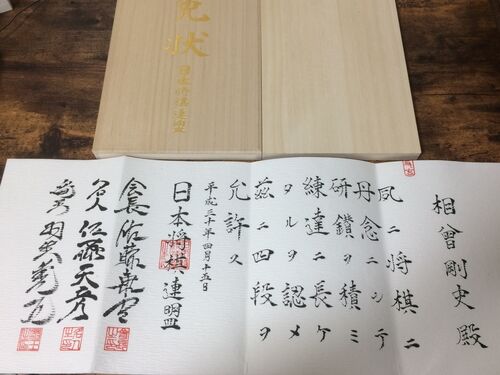 免状
日本将棋連盟
相曾剛史殿
夙ニ将棋ニ
丹念ニシテ
研鑽ヲ積ミ
練達ニ長ケ
タルヲ認メ
茲ニ四段ヲ
允許ス
平成三十年四月十五日
日本将棋連盟
会長 佐藤康光
名人 佐藤天彦
竜王 羽生善治